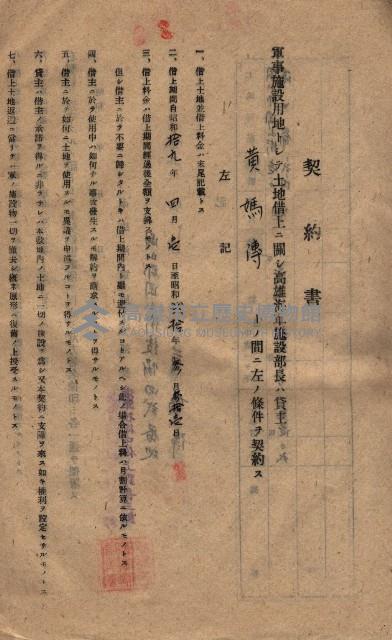 契約書
軍事施設用地トシテ土地借上ニ關シ高雄海軍施設部長ハ貸主
黄媽傳 間ニ左ノ條件ヲ契約ス
左記
一、借上土地並借上料金ハ末尾記載トス
二、借上期間自昭和拾九年四月壱日至昭和貳拾年參月參拾壱日
三、借上料金ハ借上期間經過後全額ヲ支拂フモノトス
但シ借主ニ於テ不要ニ歸シタルトキハ借上期間内ト雖モ返付スルコトアルヘシ此ノ場合借上料ハ月割計算ニ依ルモノトス
四、借主ニ於テ使用中ハ如何ナル事故發生スルモ解約ヲ請求スルコトヲ得サルモノトス
五、借主ニ於テ如何ニ土地ヲ使用スルモ異議ヲ申立ツルコトヲ得サルモノトス
六、貸主ハ借主ノ承諾ヲ得ルニ非ラサレハ本敷地内ノ土地ニ一切ノ施設ヲ爲シ又本契約ニ支障ヲ來ス如キ權利ヲ設定セサルモノトス
七、借上土地返還ニ當リテハ軍ノ施設物一切ヲ撤去シ概ネ原形ニ復舊ノ上接受スルモノトス
高雄市立歷史博物館
KAOHSIUNG MUSEUM OF HISTORY